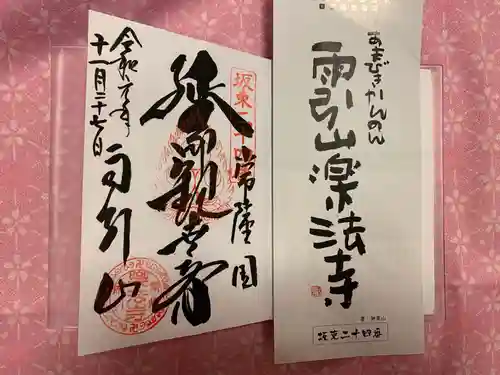 あまびきかんのん
雨引山楽法寺
坂東二十四番
坂東二十四
常陸国
延命観世音
雨引山
十一月二十七日